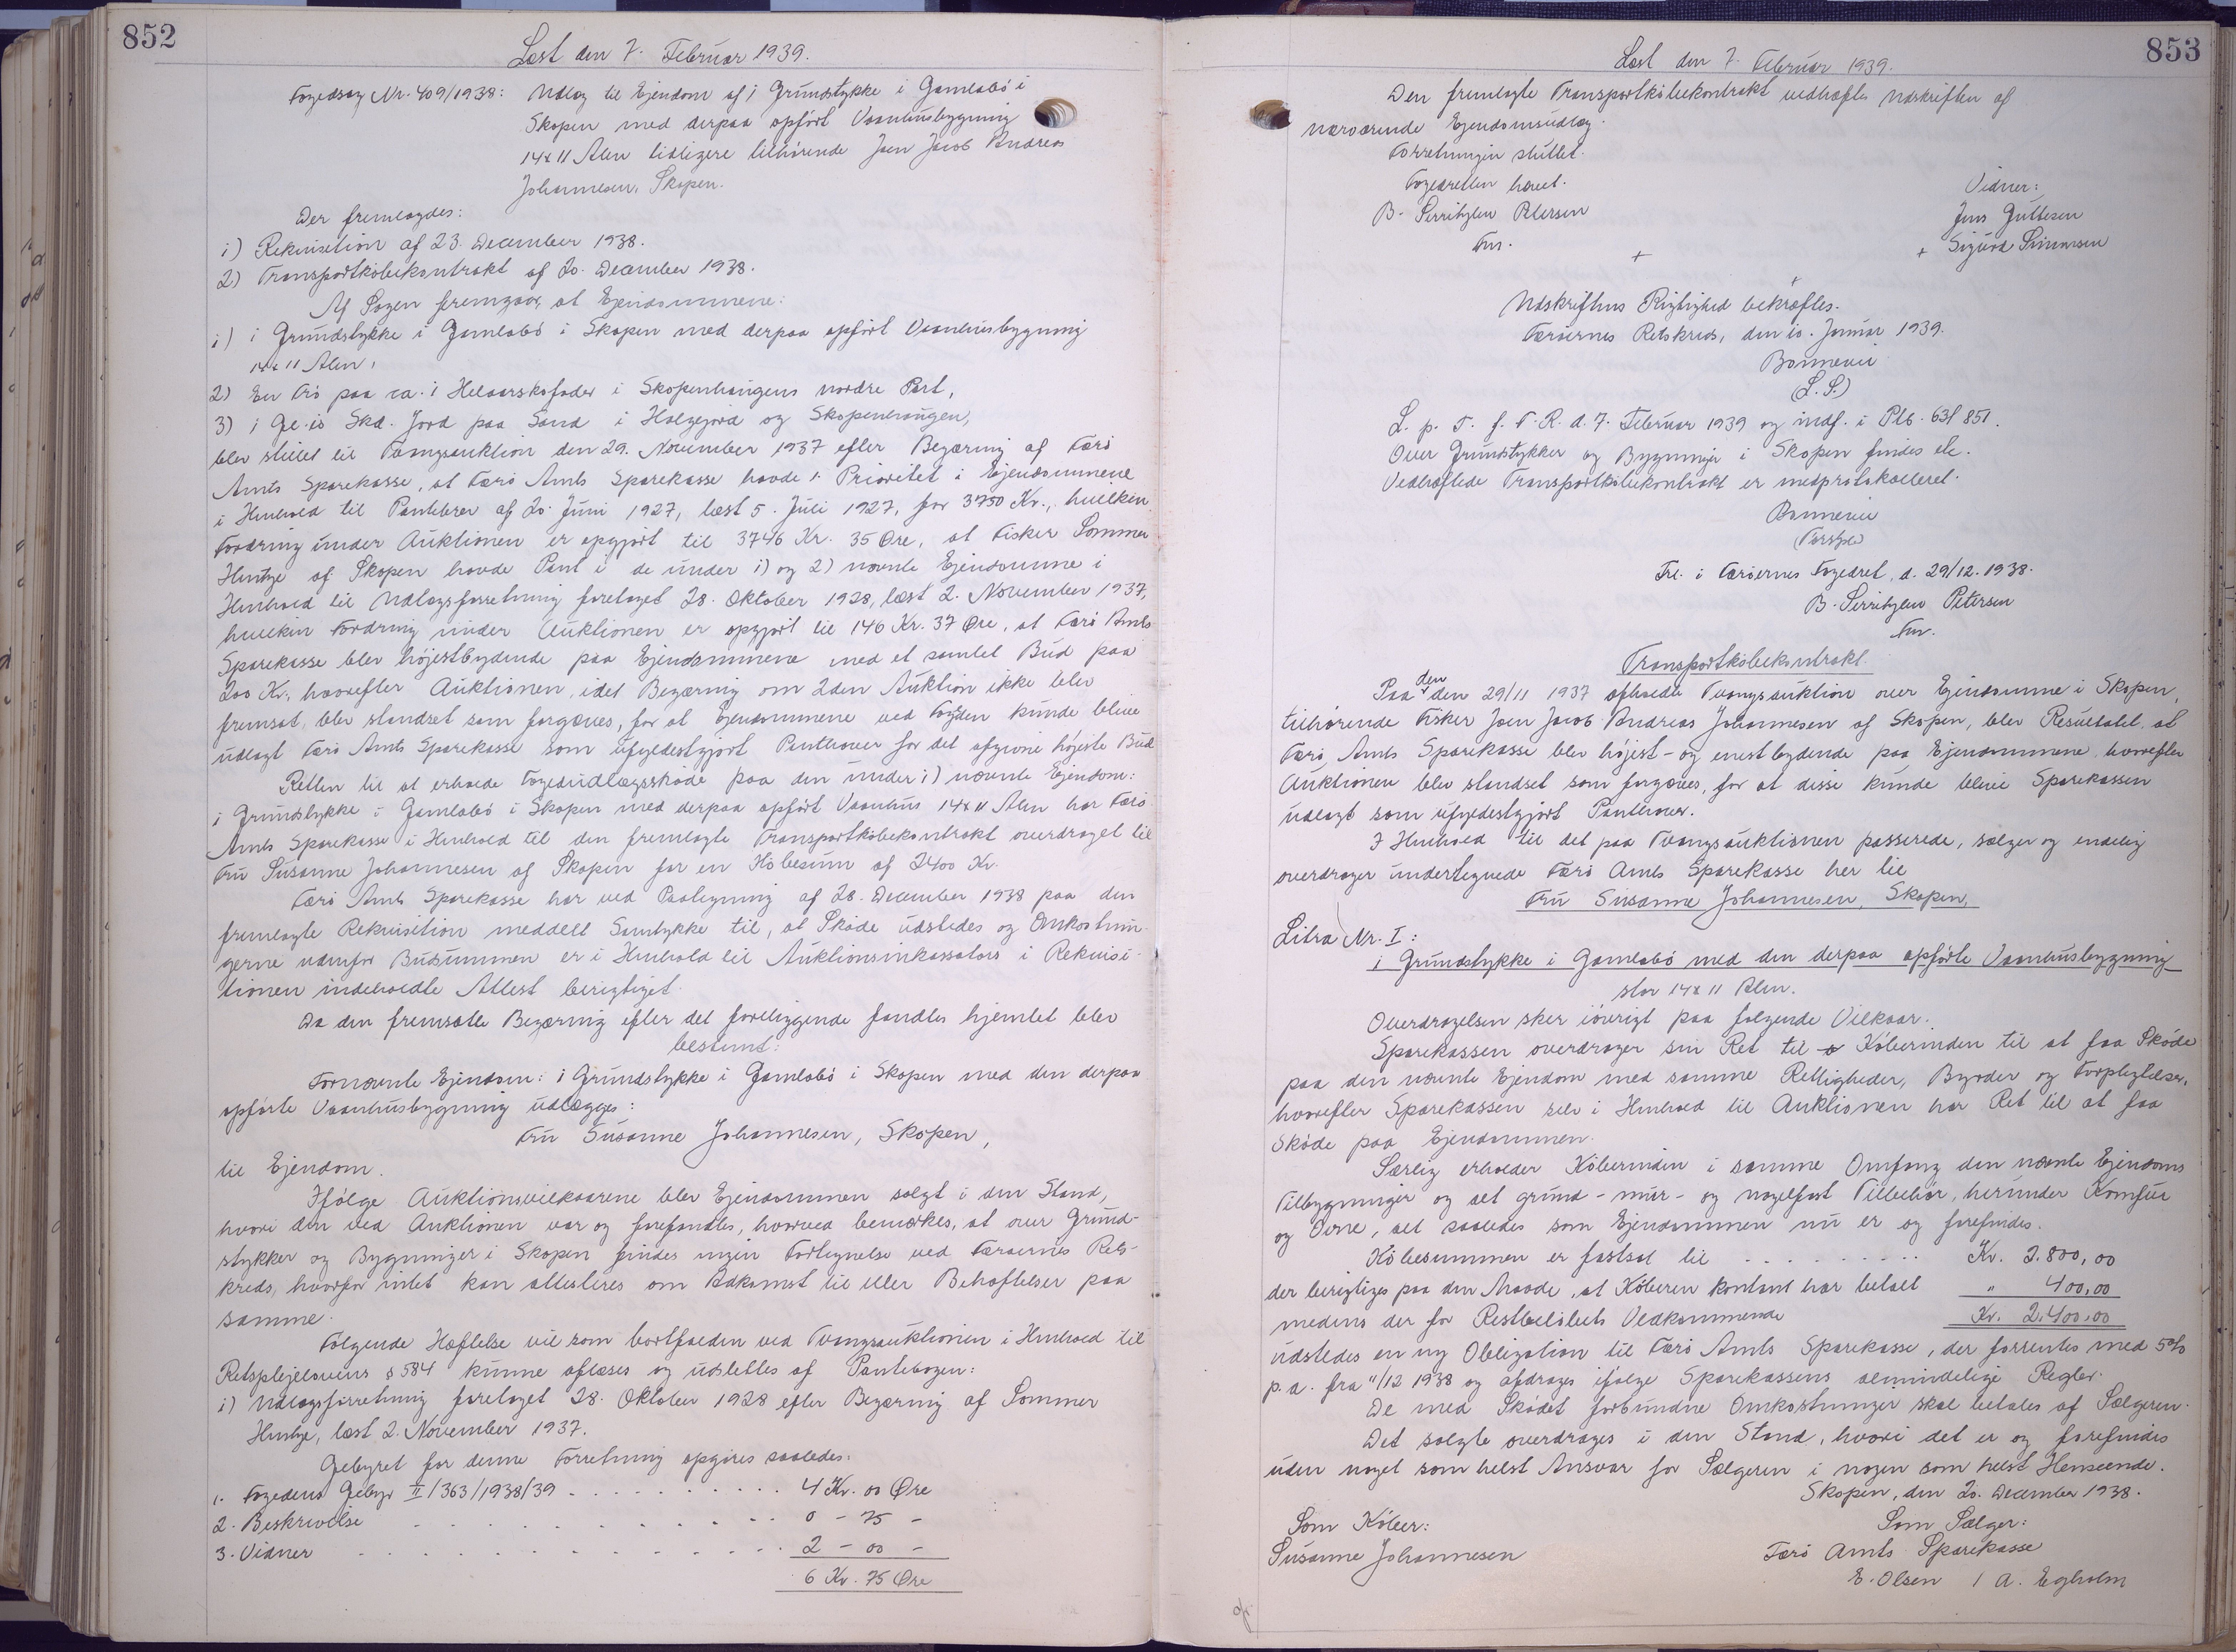 852
Læst den 7. Februar 1939.
Fogedsag Nr. 409/1938: Udlæg til Ejendom af 1 Grundstykke i Gamlabö i
Skopen med derpaa opfört Vaanhusbygning
14x11 Alen tidligere tilhörende Joen Jacob Andreas
Johannesen, Skopen.
Der fremlagdes:
1) Rekvisition af 23. December 1938.
2) Transportköbekontrakt af 20. December 1938.
Af Sagen fremgaar, at Ejendommene:
1) 1 Grundstykke i Gamlabö i Skopen med derpaa opfört Vaanhusbygning
14x11 Alen,
2) En Trö paa ca. 1 Helaarskofoder i Skopenhaugens nordre Part,
3) 1 Gl. 10 Skd. Jord paa Sand i Holgejord og Skopenhaugen,
blev stillet til Tvangsauktion den 29. November 1937 efter Begæring af Færö
Amts Sparekasse, at Færö Amts Sparekasse havde 1. Prioritet i Ejendommene
i Henhold til Pantebrev af 20. Juni 1927, læst 5. Juli 1927, for 3750 Kr., hvilken
Fordring under Auktionen er opgjort til 3746 Kr. 35 Øre, at Fisker Sommer
Hentze af Skopen havde Pant i de under 1) og 2) nævnte Ejendomme i
Henhold til Udlægsforretning foretaget 28. Oktober 1928, læst 2. November 1937,
hvilken Fordring under Auktionen er opgjort til 146 Kr. 37 Øre, at Færö Amts
Sparekasse blev höjestbydende paa Ejendommene med et samlet Bud paa
200 Kr., hvorefter Auktionen, idet Begæring om 2den Auktion ikke blev
fremsat, blev standset som forgæves, for at Ejendommene ved Fogden kunde blive
udlagt Færö Amts Sparekasse som ufyldestgjort Panthaver for det afgivne höjeste Bud
Retten til at erholde Fogedudlægsskøde paa den under 1) nævnte Ejendom:
1 Grundstykke i Gamlabö i Skopen med derpaa opfört Vaanhus 14x11 Alen har Færö
Amts Sparekasse i Henhold til den fremlagte Transportköbekontrakt overdraget til
Fru Susanne Johannesen af Skopen for en Köbesum af 2400 Kr.
Færö Amts Sparekasse har ved Paategning af 28. December 1938 paa den
fremlagte Rekvisition meddelt Samtykke til, at Sköde udstedes og Omkostnin-
gerne udenfor Budsummen er i Henhold til Auktionsinkassators i Rekvisi-
tionen indeholdte Attest berigtiget.
Da den fremsatte Begæring efter det foreliggende fandtes hjemlet blev
bestemt:
Fornævnte Ejendom: 1 Grundstykke i Gamlabö i Skopen med den derpaa
opförte Vaanhusbygning udlægges:
Fru Susanne Johannesen, Skopen,
til Ejendom.
Ifölge Auktionsvilkaarene blev Ejendommen solgt i den Stand,
hvori den ved Auktionen var og forefandtes, hvorved bemærkes, at over Grund-
stykker og Bygninger i Skopen findes ingen Fortegnelse ved Færøernes Rets-
kreds, hvorfor intet kan attesteres om Adkomst til eller Behæftelser paa
samme.
Følgende Hæftelse vil som bortfalden ved Tvangsauktionen i Henhold til
Retsplejelovens § 584 kunne aflæses og udslettes af Pantebogen:
1) Udlægsforretning foretaget 28. Oktober 1928 efter Begæring af Sommer
Hentze, læst 2. November 1937.
Gebyret for denne Forretning opgöres saaledes:
1. Fogedens Gebyr II/363/1938/39 . . . . . . . . . . 4 Kr. 00 Øre
2. Beskrivelse - - - - - - - - - - 0 - 75 -
3. Vidner - - - - - - - - - - - - 2 - 00 -
6 Kr. 75 Øre
853
Læst den 7. Februar 1939.
Den fremlagte Transportköbekontrakt vedhæftes Udskriften af
nærværende Ejendomsudlæg.
Forretningen sluttet.
Fogedretten hævet.
Vidner:
B. Serritzlew Petersen
Jens Guttesen
Fm.
+ + Sigurd Simonsen
+
Udskriftens Rigtighed bekræftes.
Færöernes Retskreds, den 10. Januar 1939.
Bonnevie
(L.S.)
L. p. T. f. F. R. d. 7. Februar 1939 og indf. i Ptb. 63f 851.
Over Grundstykker og Bygninger i Skopen findes etc.
Vedhæftede Transportköbekontrakt er medprotokolleret.
Bonnevie
Frl. i Færöernes Fogedret, d. 29/12. 1938.
B. Serritzlew Petersen
Fm.
Transportköbekontrakt.
den
Paa den 29/11 1937 afholdte Tvangsauktion over Ejendomme i Skopen,
tilhörende Fisker Joen Jacob Andreas Johannesen af Skopen, blev Resultatet, at
Færö Amts Sparekasse blev höjest- og enestbydende paa Ejendommene, hvorefter
Auktionen blev standset som forgæves, for at disse kunde blive Sparekassen
udlagt som ufyldestgjort Panthaver.
I Henhold til det paa Tvangsauktionen passerede, sælger og endelig
overdrager undertegnede Færö Amts Sparekasse her til
Fru Susanne Johannesen, Skopen,
Litra Nr. I:
1 Grundstykke i Gamlabö med den derpaa opförte Vaanhusbygning
stor 14x11 Alen.
Overdragelsen sker iövrigt paa folgende Vilkaar.
Sparekassen overdrager sin Ret til Köberinden til at faa Sköde
paa den nævnte Ejendom med samme Rettigheder, Byrder og Forpligtelser,
hvorefter Sparekassen selv i Henhold til Auktionen har Ret til at faa
Sköde paa Ejendommen.
Særlig erholder Köberinden i samme Omfang den nævnte Ejendoms
Tilbygninger og alt grund- mur- og nagelfast Tilbehör, herunder Komfur
og Ovne, alt saaledes som Ejendommen nu er og forefindes.
Köbesummen er fastsat til - - - - - - - - - Kr. 2.800,00
der berigtiges paa den Maade, at Köberen kontant har betalt " 400,00
medens der for Restbelöbets Vedkommende Kr. 2.400,00
udstedes en ny Obligation til Færö Amts Sparekasse, der forrentes med 5%
p.a. fra 11/12 1938 og afdrages ifölge Sparekassens almindelige Regler.
De med Skødet forbundne Omkostninger skal betales af Sælgeren.
Det solgte overdrages i den Stand, hvori det er og forefindes
uden noget som helst Ansvar for Sælgeren i nogen som helst Henseende.
Skopen, den 20. December 1938.
Som Köber:
Som Sælger:
Susanne Johannesen
Færö Amts Sparekasse
E. Olsen / A. Egholm